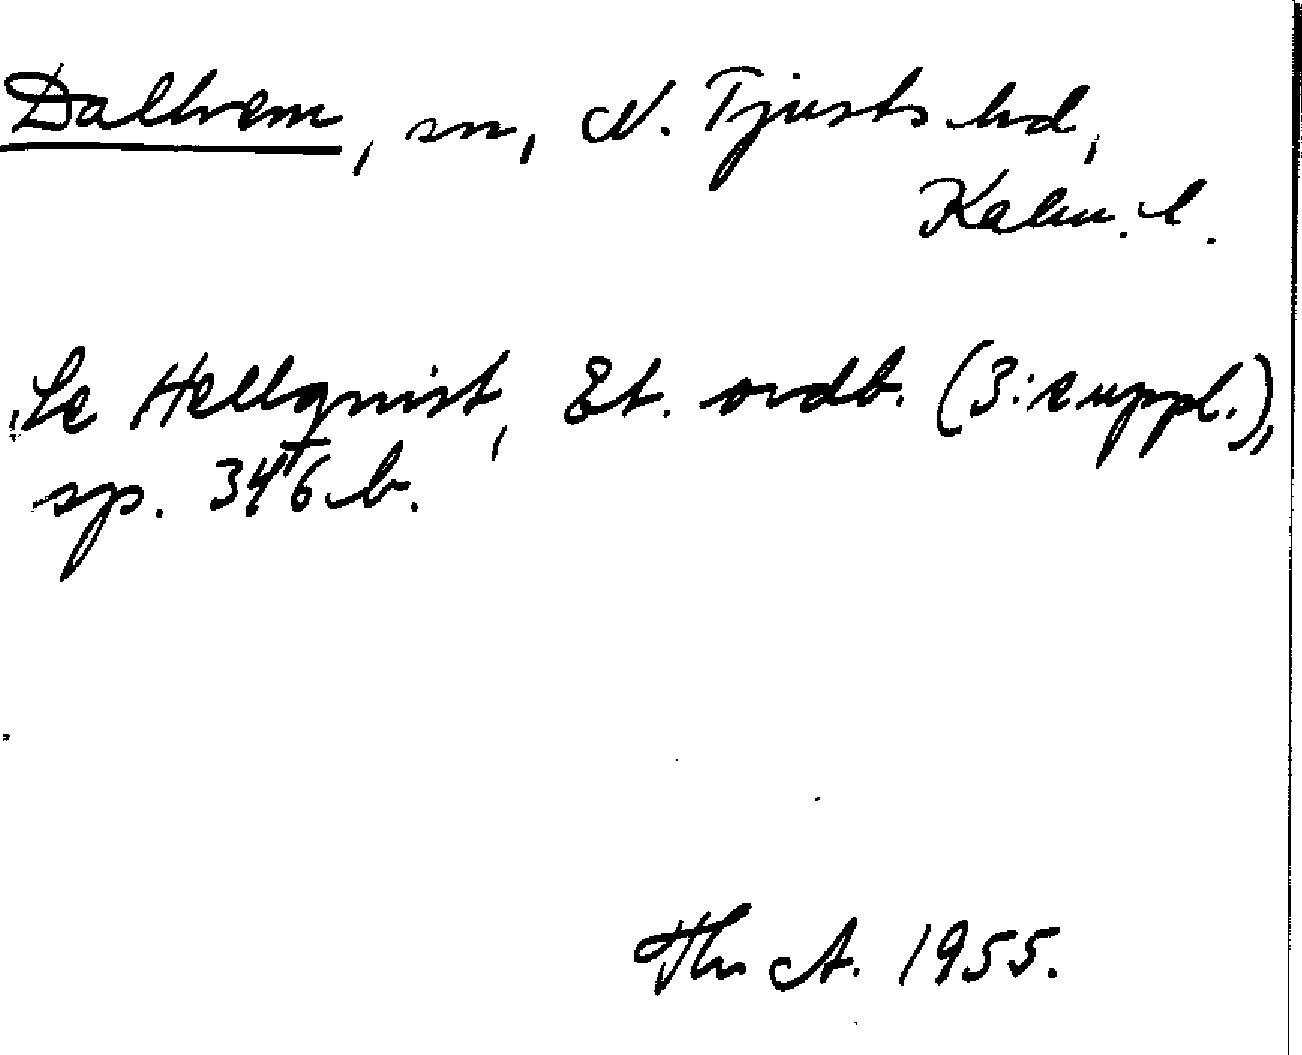 Dalhem, sn, N. Tjusts hd,
Kalm. l.
Se Hellquist, Et. ordb. (3: suppl.),
sp. 346 b.
Ths A. 1955.